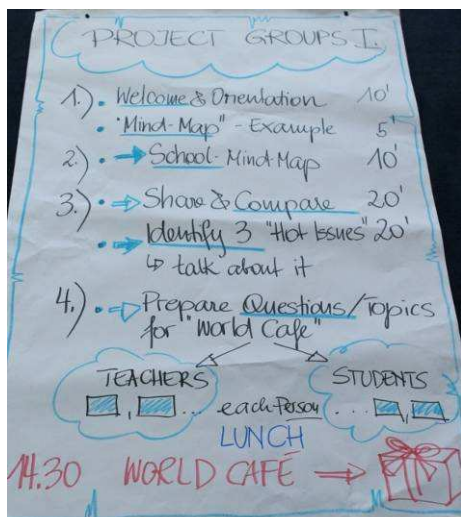 PROJECT GROUPS I.
1.) • Welcome & Orientation 10'
• "Mind-Map" - Example 5'
2.) • → School-Mind Map 10'
3.) • ⇨ Share & Compare 20'
• → Identify 3 "Hot Issues" 20'
↳ talk about it
4.) • ⇨ Prepare Questions/Topics
for "World Cafe"
TEACHERS STUDENTS
, ... each Person ... ,
LUNCH
14.30 WORLD CAFÉ →